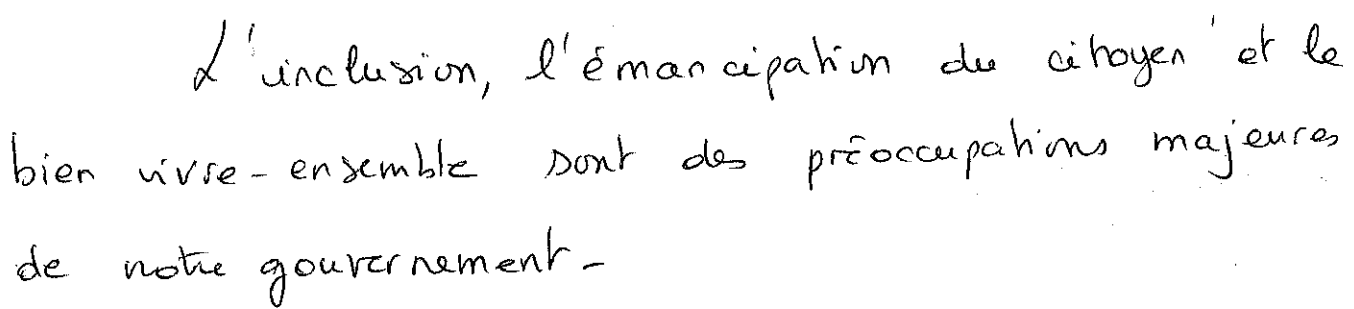 L'inclusion, l'émancipation du citoyen et le
bien vivre-ensemble sont des préoccupations majeures
de notre gouvernement.